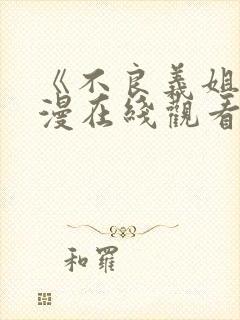 《不良義姐
漫在綫觀看
和羅